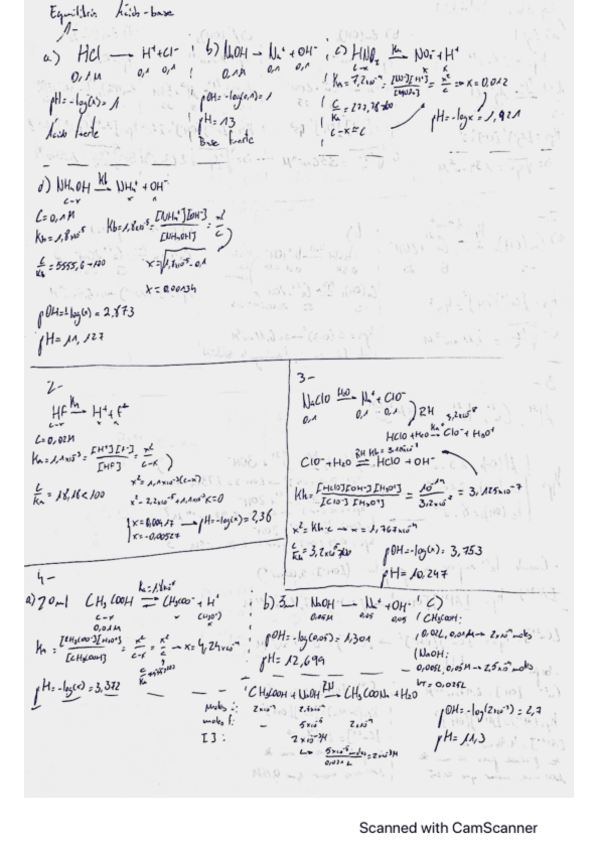 Equilibris Àcids-base
1-
a) HCl → H⁺+Cl⁻
0,1M 0,1 0,1
pH=-log(x)=1
Àcid fuerte
b) NaOH → Na⁺+OH⁻
0,1M 0,1 0,1
pOH=-log(0,1)=1
pH=13
Base fuerte
c) HNO₂ →(Ka) NO₂⁻+H⁺
c-x x x
→ x=0,012
C/Ka
C-x≈C
pH=-logx=1,921
d) NH₄OH →(Kb) NH₄⁺+OH⁻
c-x x x
C=0,1M
Kb=1,8x10⁻⁵
Kb=1,8x10⁻⁵=[NH₄⁺][OH⁻]/[NH₄OH]=x²/C
C/Kb=5555,6>100
x=√1,8x10⁻⁵·0,1
x=0,00134
pOH=-log(x)=2,873
pH=11,127
2-
HF →(Ka) H⁺+F⁻
c-x x x
C=0,02M
Ka=1,1x10⁻³=[H⁺][F⁻]/[HF]=x²/c-x
C/Ka=18,18<100
x²=1,1x10⁻³(c-x)
x=0,00417 → pH=-log(x)=2,36
x=-0,00527
3-
NaClO →(H₂O) Na⁺+ClO⁻
0,1 0,1 0,1
RH
3,2x10⁻⁸
HClO+H₂O ⇌(Ka) ClO⁻+H₃O⁺
ClO⁻+H₂O ⇌ HClO+OH⁻
Kh=[HClO][OH⁻][H₃O⁺]/[ClO⁻][H₃O⁺]=10⁻¹⁴/3,2x10⁻⁸=3,125x10⁻⁷
x²=Kh·c → x=1,767x10⁻⁴
pOH=-log(x)=3,753
pH=10,247
4-
a) 20ml CH₃COOH ⇌ CH₃COO⁻+H⁺
c-x x x
0,01M (H₃O⁺)
Ka=[CH₃COO⁻][H₃O⁺]/[CH₃COOH]=x²/c-x=x²/c → x=4,24x10⁻⁴
pH=-log(x)=3,372
b) 5ml NaOH → Na⁺+OH⁻
0,05M 0,05 0,05
pOH=-log(0,05)=1,301
pH=12,699
c)
CH₃COOH:
0,02L, 0,01M → 2x10⁻⁴ mols
NaOH:
0,005L, 0,05M → 2,5x10⁻⁴ mols
VT=0,025L
CH₃COOH+NaOH → CH₃COONa+H₂O
mols i: 2x10⁻⁴ 2,5x10⁻⁴
mols f: - 5x10⁻⁵ 2x10⁻⁴
2x10⁻³M
pOH=-log(2x10⁻³)=2,7
pH=11,3
Scanned with CamScanner